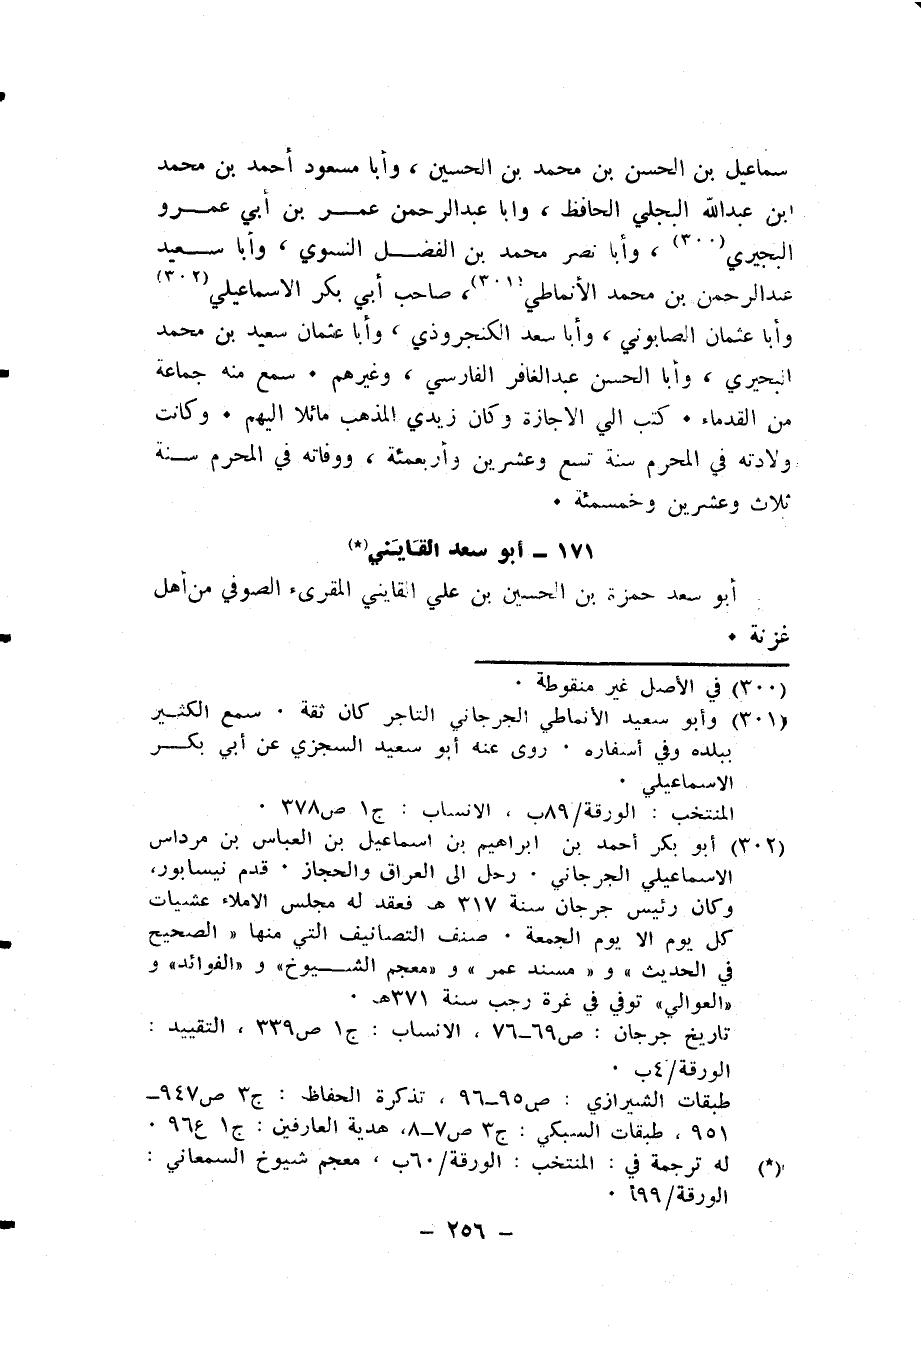 سماعيل بن الحسن بن محمد بن الحسين ، وأبا مسعود أحمد بن محمد
ابن عبدالله البجلي الحافظ ، وابا عبدالرحمن عمـــر بن أبي عمـرو
البجيري(٣٠٠) ، وأبا نصر محمد بن الفضـــل النسوي ، وأبا ســعيد
عبدالرحمن بن محمد الأنماطي(٣٠١)، صاحب أبي بكر الاسماعيلي(٣٠٢)
وأبا عثمان الصابوني ، وأبا سعد الكنجروذي ، وأبا عثمان سعيد بن محمد
البحيري ، وأبا الحسن عبدالغافر الفارسي ، وغيرهم · سمع منه جماعة
من القدماء · كتب الي الاجازة وكان زيدي المذهب مائلا اليهم · وكانت
ولادته في المحرم سنة تسع وعشرين وأربعمئة ، ووفاته في المحرم سـنة
ثلاث وعشرين وخمسمئة ·
١٧١ ـ أبو سعد القَايَني(*)
أبو سعد حمزة بن الحسين بن علي القايني المقرىء الصوفي من أهل
غزنة ·
(٣٠٠) في الأصل غير منقوطة ·
(٣٠١) وأبو سعيد الأنماطي الجرجاني التاجر كان ثقة · سمع الكثـير
ببلده وفي أسفاره · روى عنه أبو سعيد السجزي عن أبي بكـــر
الاسماعيلي ·
المنتخب : الورقة/٨٩ب ، الانساب : ج١ ص٣٧٨ ·
(٣٠٢) أبو بكر أحمد بن ابراهيم بن اسماعيل بن العباس بن مرداس
الاسماعيلي الجرجاني · رحل الى العراق والحجاز · قدم نيسابور،
وكان رئيس جرجان سنة ٣١٧ هـ فعقد له مجلس الاملاء عشيات
كل يوم الا يوم الجمعة · صنف التصانيف التي منها « الصحيح
في الحديث » و « مسند عمر » و «معجم الشـــيوخ» و «الفوائد» و
«العوالي» توفي في غرة رجب سنة ٣٧١هـ ·
تاريخ جرجان : ص٦٩ـ٧٦ ، الانساب : ج١ ص٣٣٩ ، التقييد :
الورقة/٤ب ·
طبقات الشيرازي : ص٩٥ـ٩٦ ، تذكرة الحفاظ : ج٣ ص٩٤٧ـ
٩٥١ ، طبقات السبكي : ج٣ ص٧ـ٨، هدية العارفين : ج١ ع٩٦ ·
(*) له ترجمة في : المنتخب : الورقة/٦٠ب ، معجم شيوخ السمعاني :
الورقة/٩٩أ ·
ـ ٢٥٦ ـ